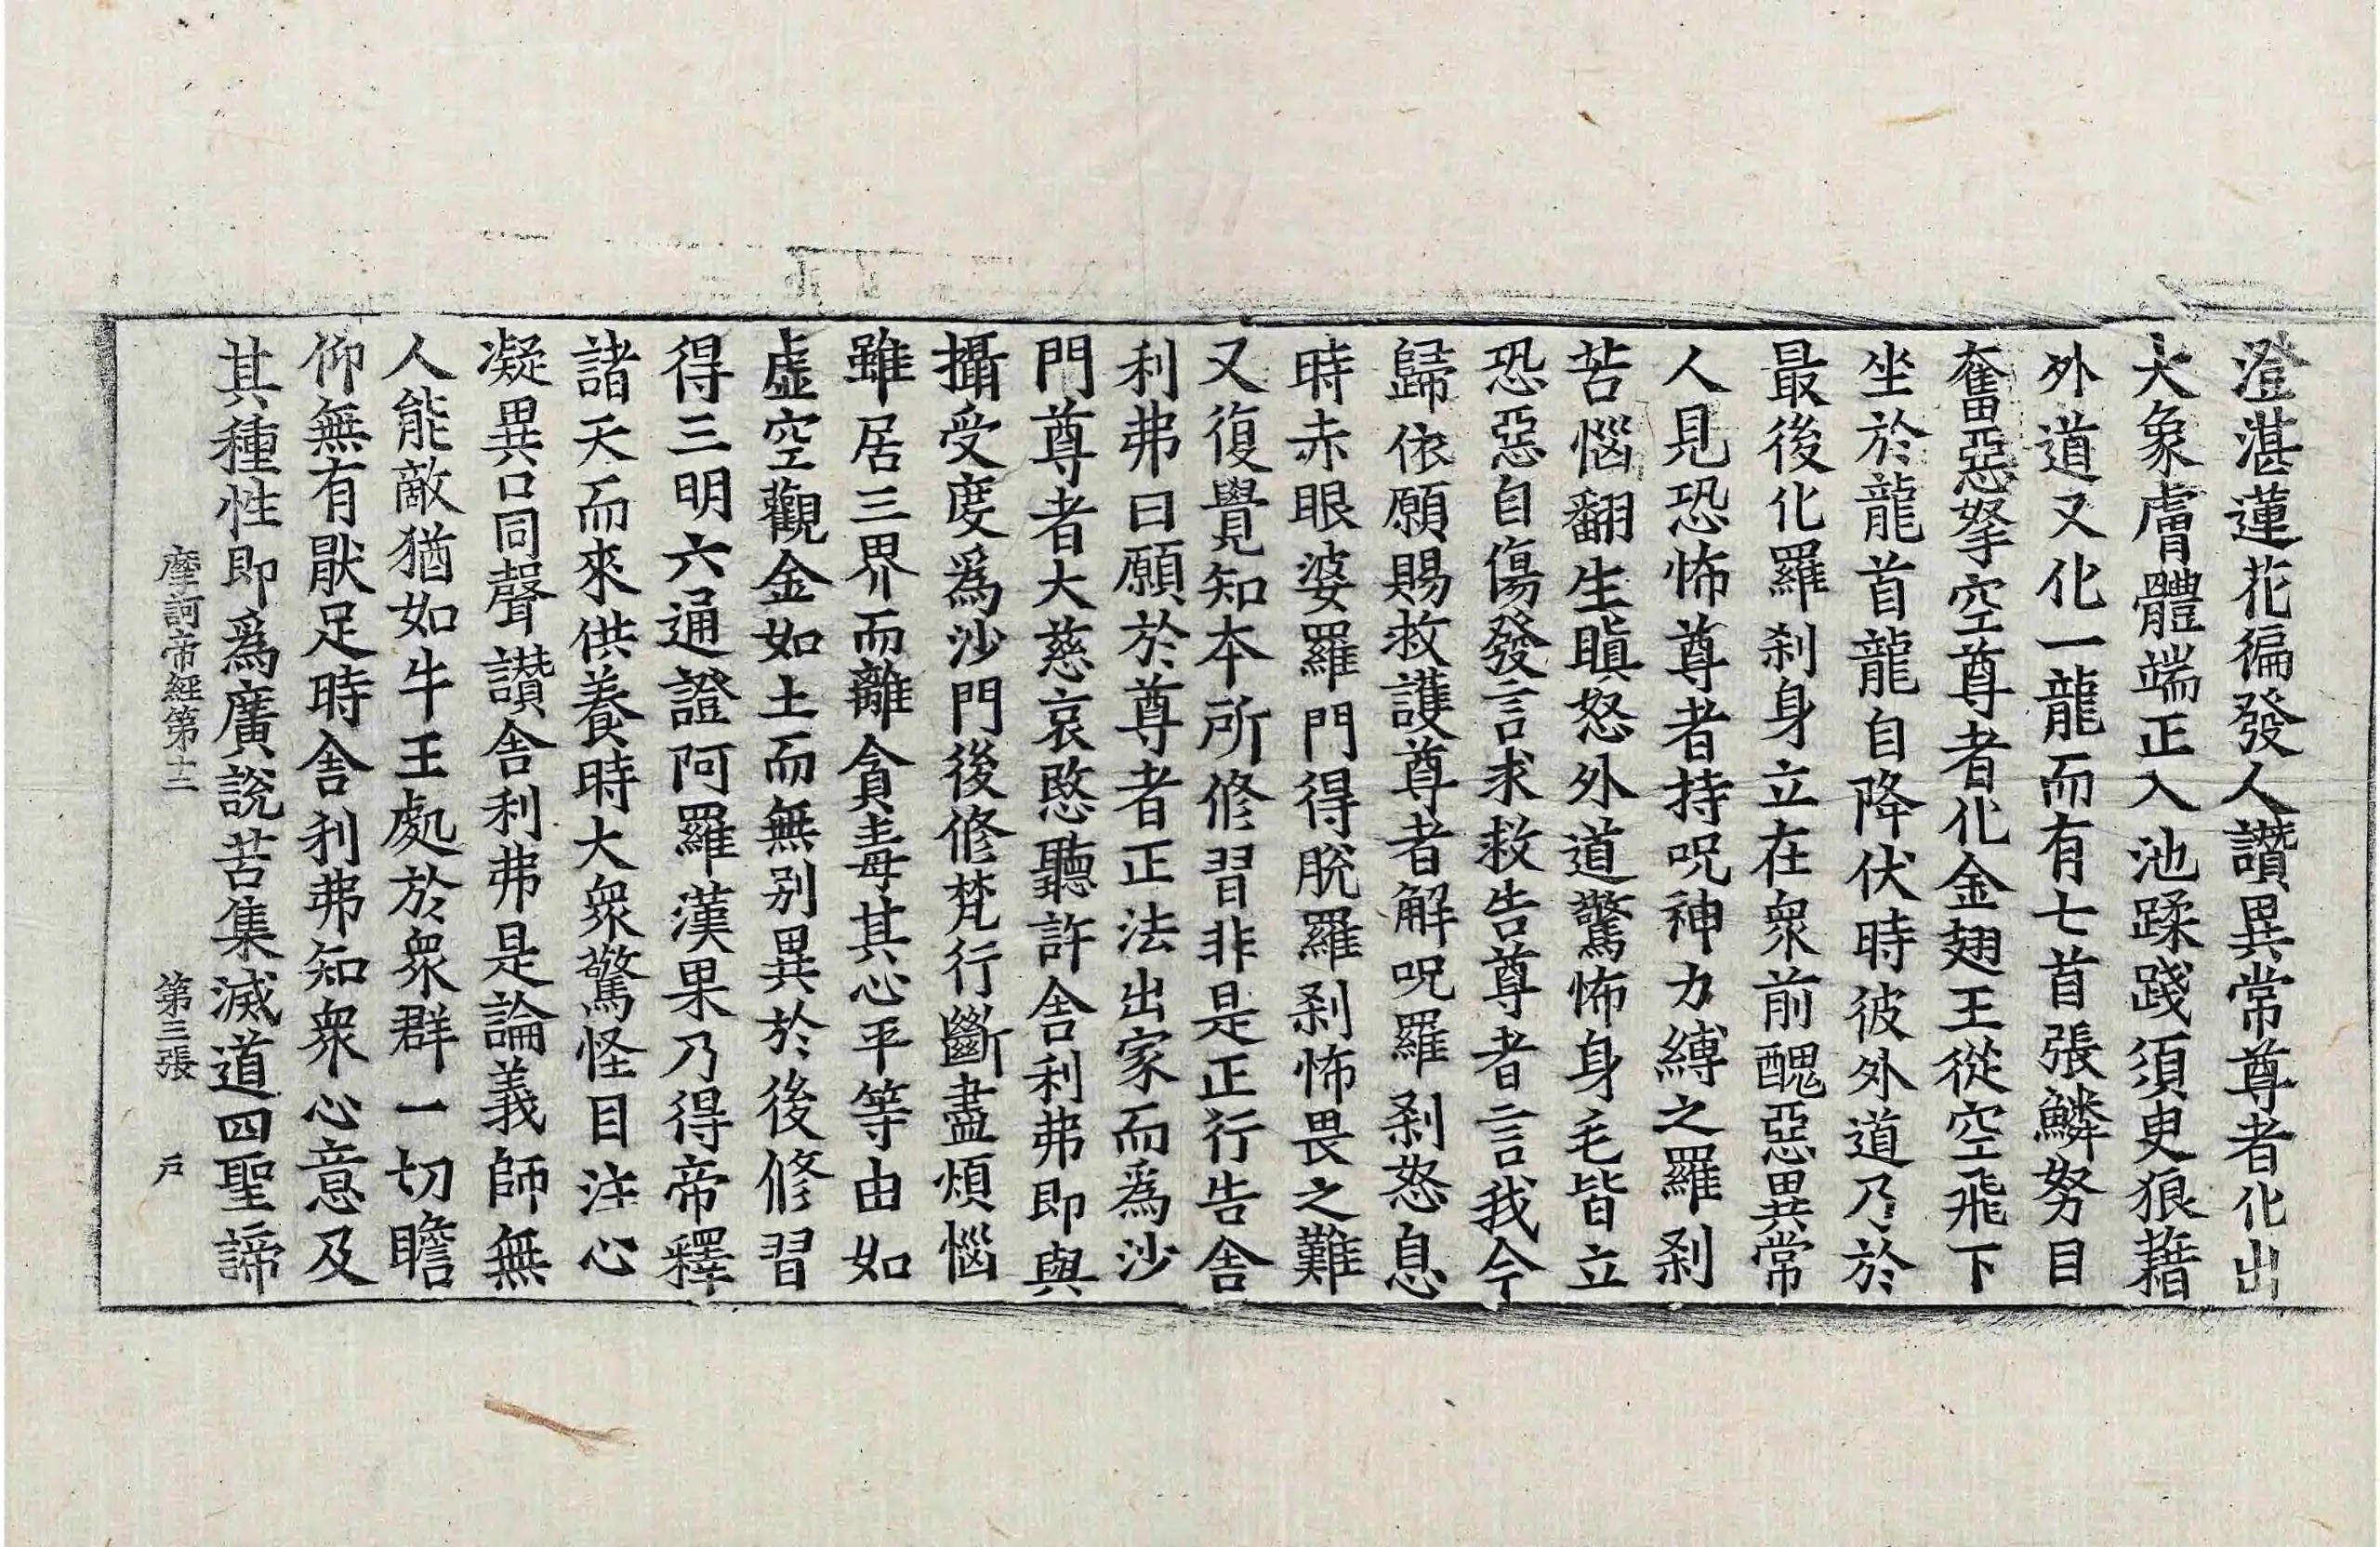 澄湛蓮花徧發人讚異常尊者化出
大象膚體端正入池蹂踐須臾狼藉
外道又化一龍而有七首張鱗努目
奮惡拏空尊者化金翅王從空飛下
坐於龍首龍自降伏時彼外道乃於
最後化羅剎身立在衆前醜惡異常
人見恐怖尊者持呪神力縛之羅剎
苦惱翻生瞋怒外道驚怖身毛皆立
恐惡自傷發言求救告尊者言我今
歸依願賜救護尊者解呪羅剎怒息
時赤眼婆羅門得脫羅剎怖畏之難
又復覺知本所修習非是正行告舍
利弗曰願於尊者正法出家而爲沙
門尊者大慈哀愍聽許舍利弗即與
攝受度爲沙門後修梵行斷盡煩惱
雖居三界而離貪毒其心平等由如
虛空觀金如土而無别異於後修習
得三明六通證阿羅漢果乃得帝釋
諸天而來供養時大衆驚怪目注心
凝異口同聲讚舍利弗是論義師無
人能敵猶如牛王處於衆群一切瞻
仰無有猒足時舍利弗知衆心意及
其種性即爲廣說苦集滅道四聖諦
摩訶帝經第十二 第三張 戶